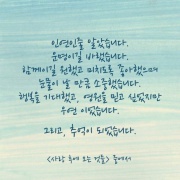 인연인줄 알았습니다.
운명이길 바랬습니다.
함께이길 원했고 미치도록 좋아했으며
눈물이 날 만큼 소중했습니다.
행복을 기대했고, 영원을 믿고 싶었지만
우연 이었습니다.
그리고, 추억이 되었습니다.
<사랑 후에 오는 것들> 중에서